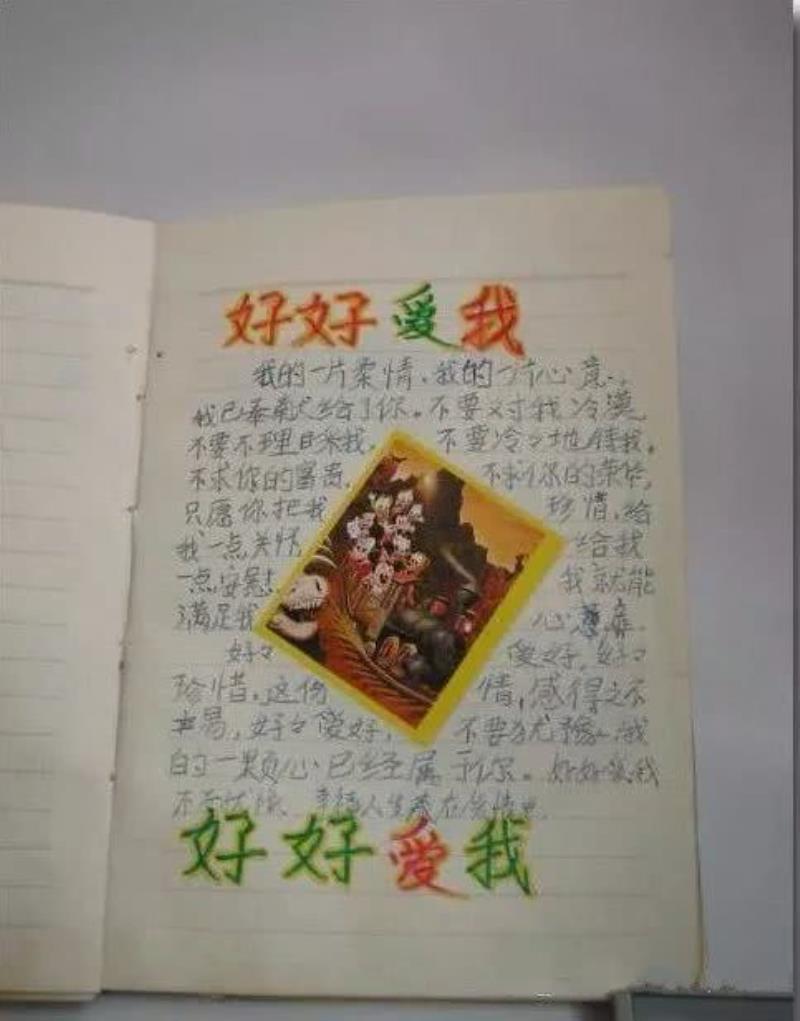 好好爱我
我的一片柔情、我的一片心意、
我已奉献给了你。不要对我冷漠
不要不理睬我、不要冷々地待我。
不求你的富贵、不求你的荣华,
只愿你把我 珍惜、给
我一点关怀 给我
一点安慰 我就能
满足我 心意
好々 爱我、好々
珍惜。这份 情,感得之不
易,好々爱我、不要犹豫、我
的一颗心已经属于你。好好爱我
不要 幸福人生 在 情
好好爱我